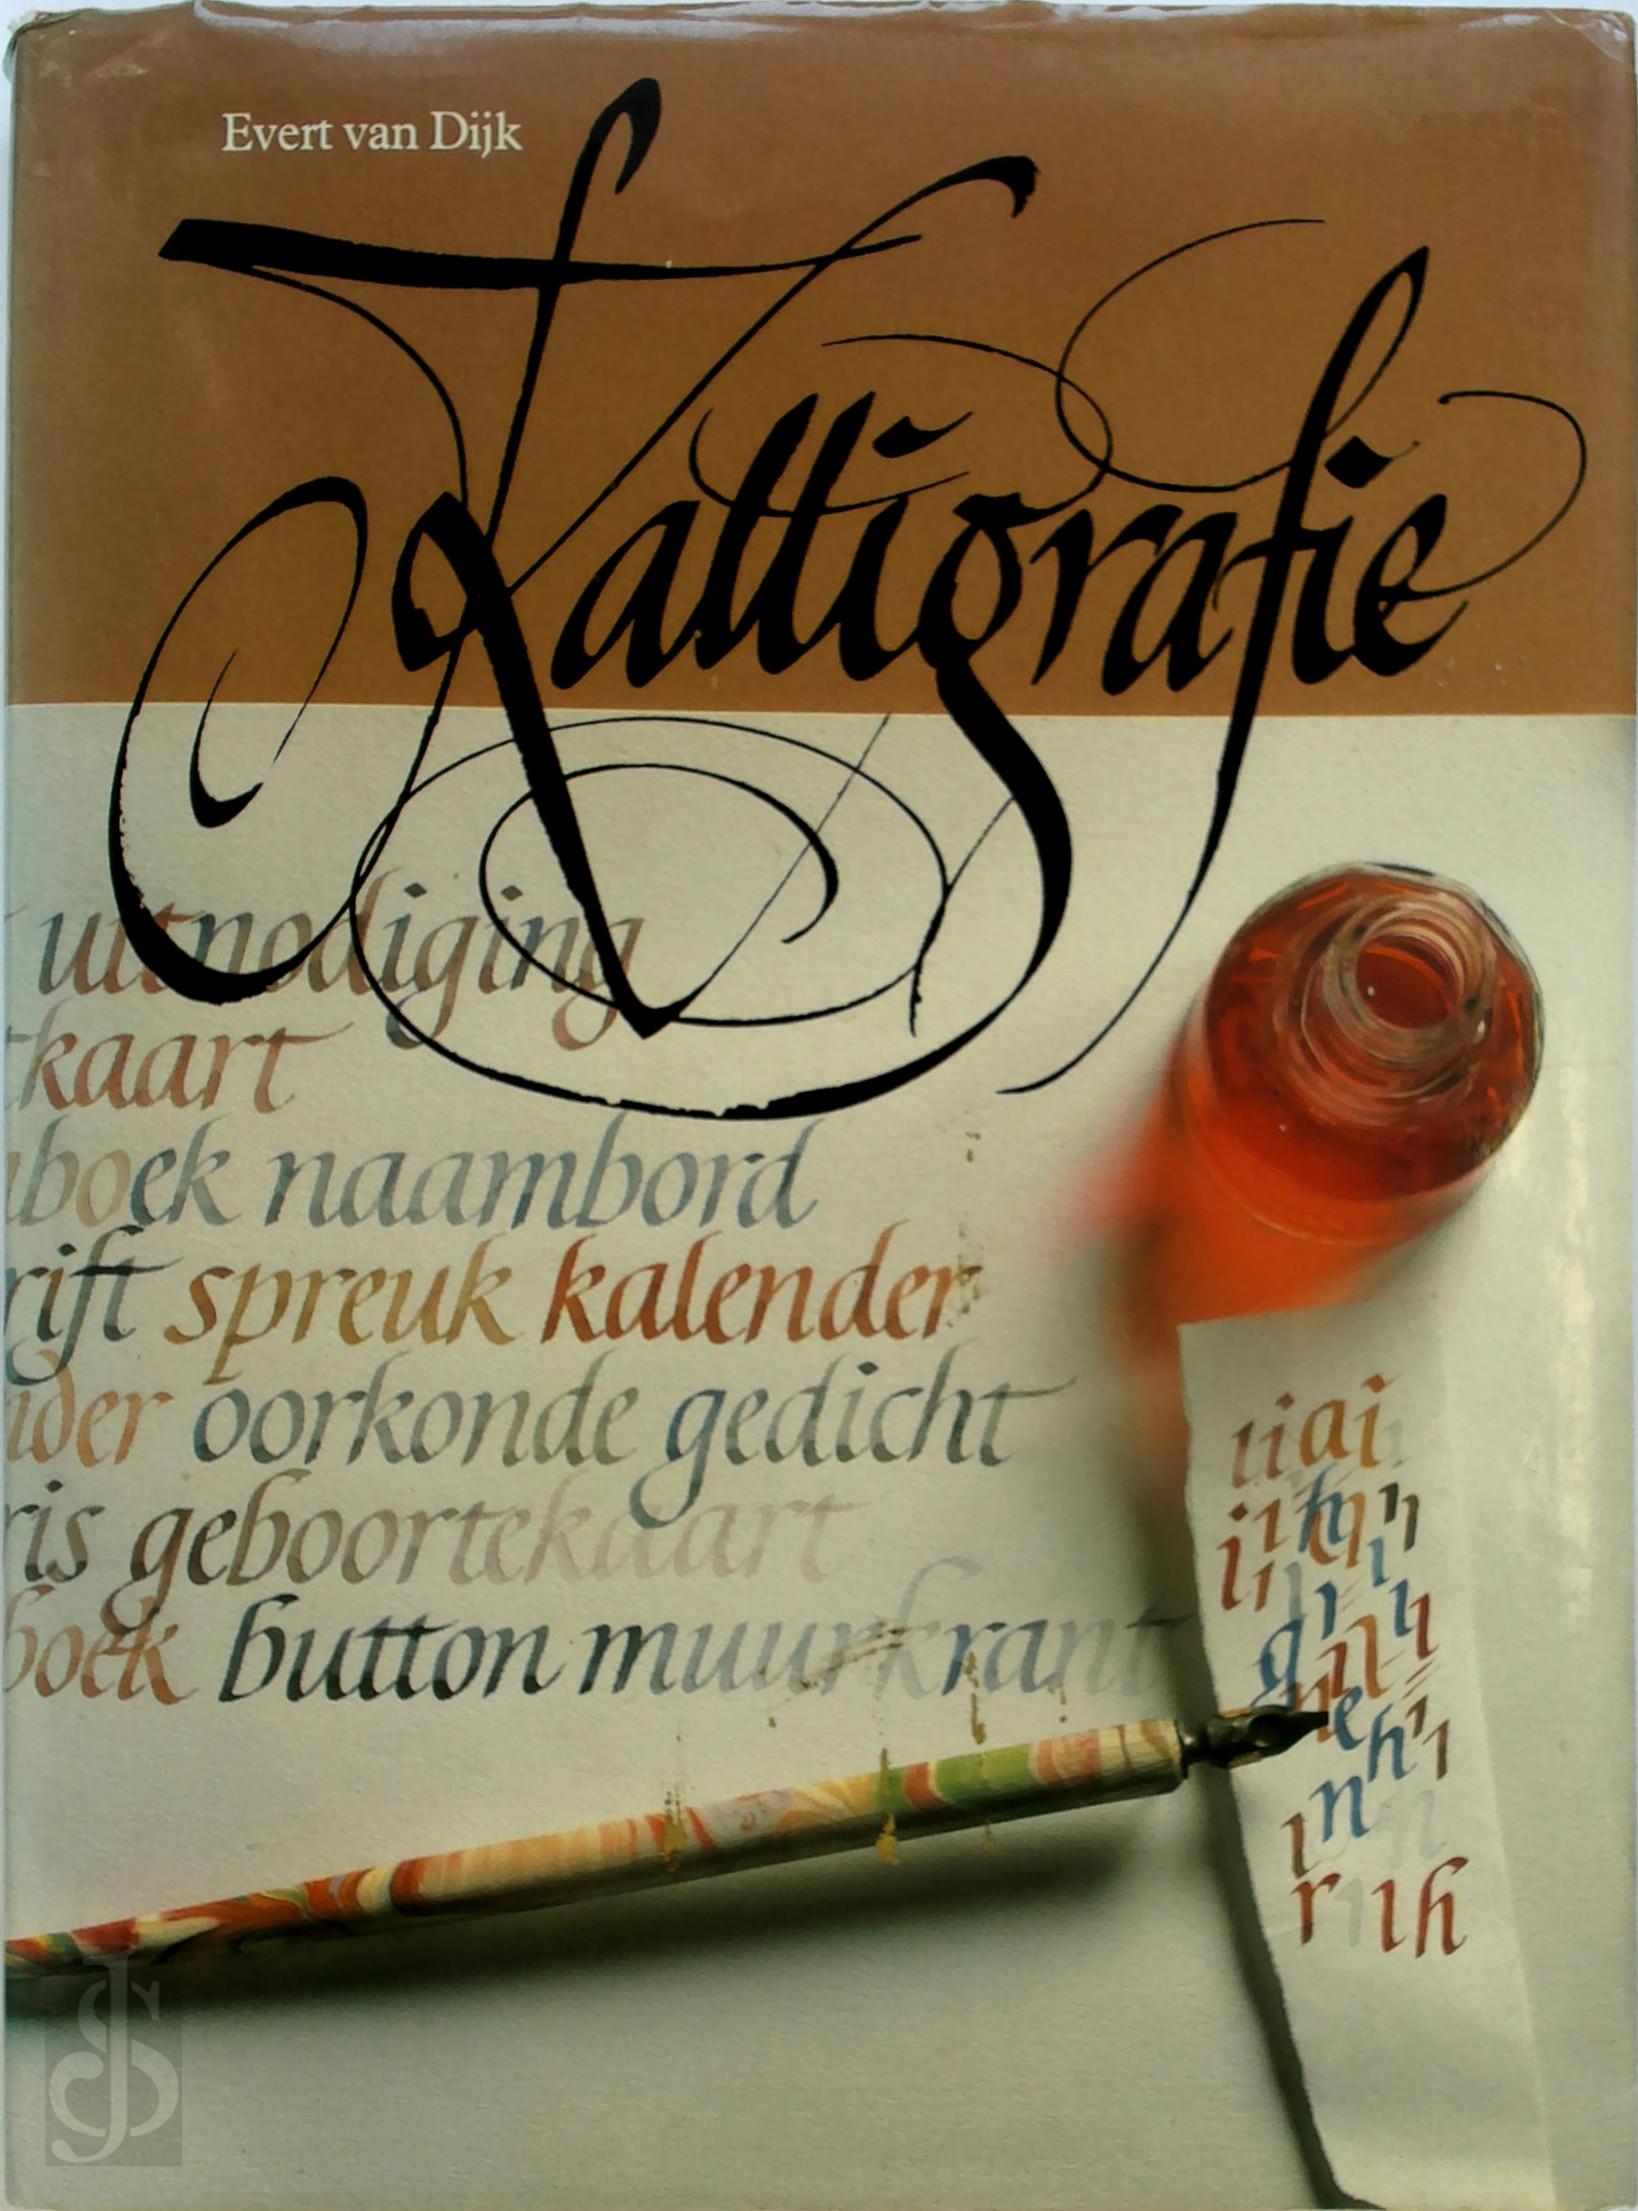 Evert van Dijk
Kalligrafie
uitnodiging
kaart
boek naambord
rift spreuk kalender
der oorkonde gedicht
ris geboortekaart
boek button muurkrant